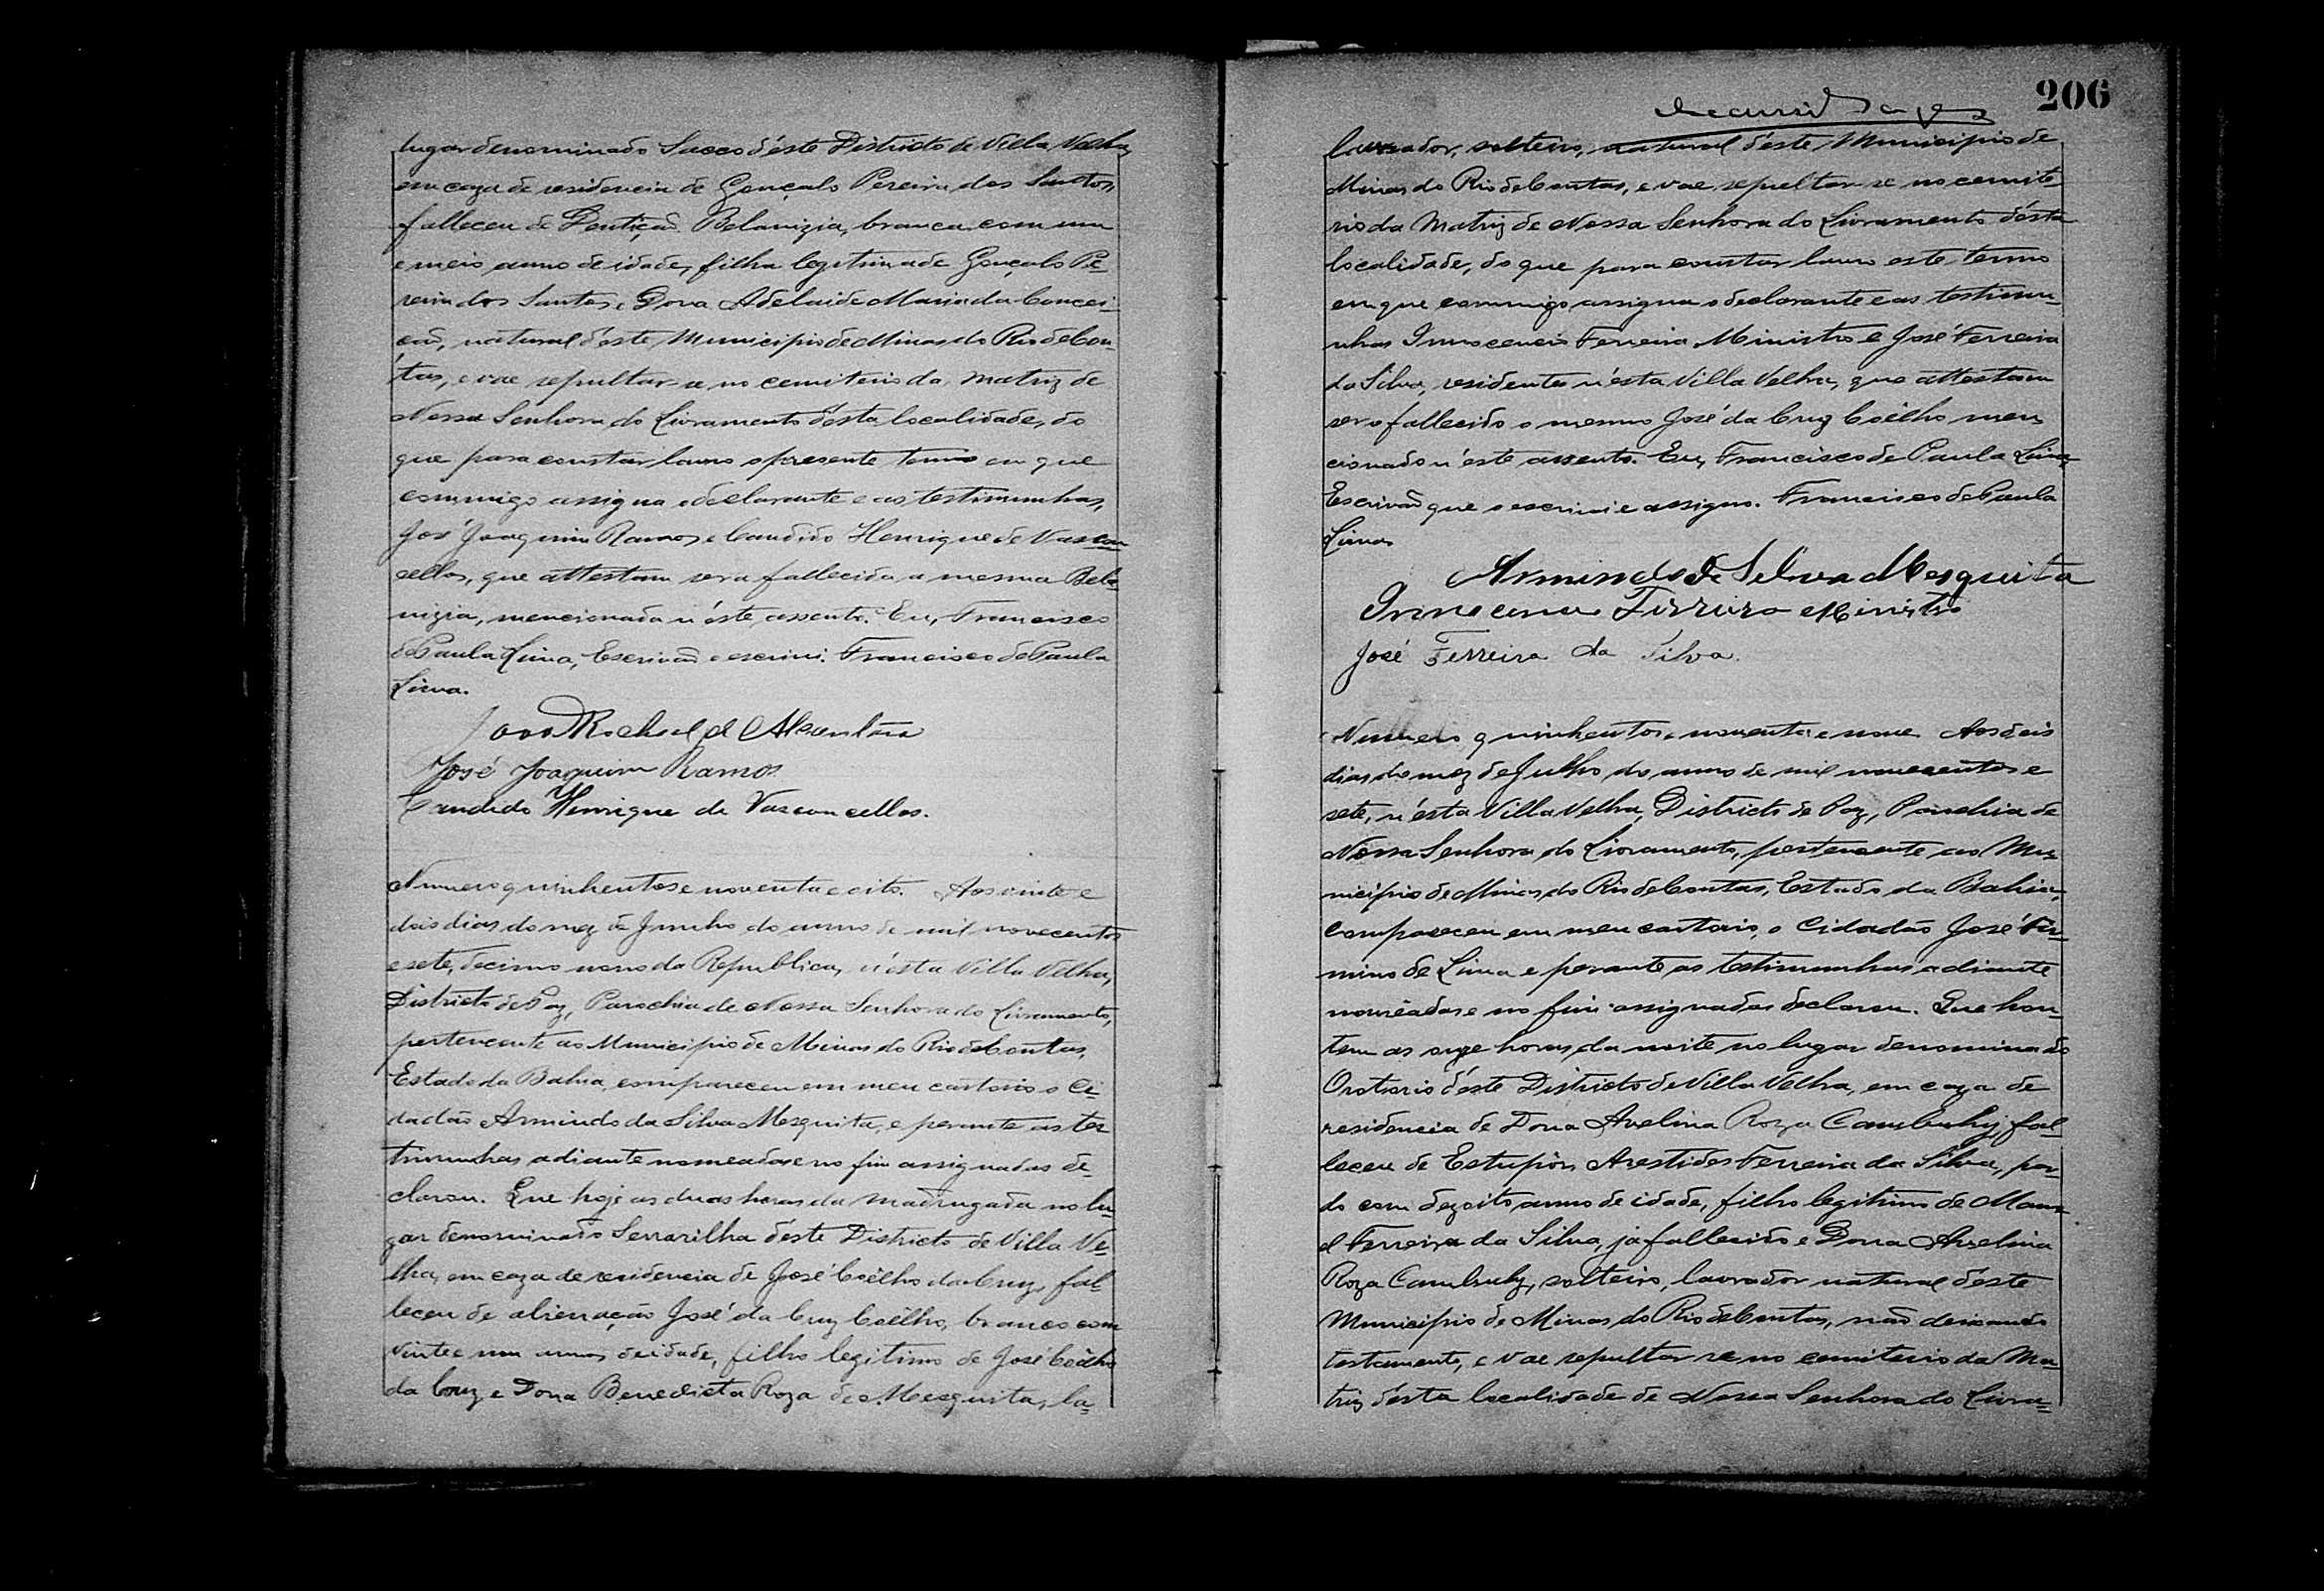 lugar denominado Sacco d'éste Districto de Villa Velha,
em caza de residencia de Gonçalo Pereira dos Santos,
falleceu de Dentição Belanizia, branca, com um
e meio anno de idade, filha legitima de Gonçalo Pe=
reira dos Santos e Dona Adelaide Maria da Concei=
ção, natural d'éste Municipio de Minas do Rio de Con=
tas, e vae sepultar-se no cemiterio da Matriz de
Nossa Senhora do Livramento d'ésta localidade, do
que para constar lavro o presente termo em que
commigo assigna o declarante e as testimunhas,
José Joaquim Ramos e Candido Henrique de Vascon
cellos, que attestam ser a fallecida a mesma Bela=
nizia, mencionada n'éste assento. Eu, Francisco
de Paula Lima, Escrivão o escrivi. Francisco de Paula
Lima.
de Alcantara
José Joaquim Ramos
Candido Henrique de Vasconcellos.
Numero quinhentos e noventa e oito. Aos vinte e
dois dias do mez de Junho do anno de mil novecentos
e sete, decimo nono da Republica, n'ésta Villa Velha,
Districto de Paz, Parochia de Nossa Senhora do Livramento,
pertencente ao Municipio de Minas do Rio de Contas,
Estado da Bahia, compareceu em meu cartorio o Ci=
dadão Armindo da Silva Mesquita, e perante as tes
timunhas adiante nomeadas e no fim assignadas de=
clarou. Que hoje as duas horas da madrugada no lu=
gar denominado Serrarilha d'éste Districto de Villa Ve
lha, em caza de residencia de José Coêlho da Cruz, fal=
leceu de alienação José da Cruz Coêlho, branco com
vinte e um annos de idade, filho legitimo de José Coêlho
da Cruz e Dona Benedicta Roza de Mesquita, la=
206
lavrador, solteiro, natural d'éste Municipio de
Minas do Rio de Contas, e vae sepultar-se no cemite
rio da Matriz de Nossa Senhora do Livramento d'ésta
localidade, do que para constar lavro este termo
em que commigo assigna o declarante e as testimu=
nhas Innocencio Ferreira Ministro e José Ferreira
da Silva, residentes n'ésta Villa Velha, que attestam
ser o fallecido o mesmo José da Cruz Coêlho men
cionado n'éste assento. Eu, Francisco de Paula Lima,
Escrivão que o escrivi e assigno. Francisco de Paula
Lima
Armindo da Silva Mesquita
Innocencio Ferreira Ministro
José Ferreira da Silva.
Numero quinhentos e noventa e nove. Aos dois
dias do mez de Julho do anno de mil novecentos e
sete, n'ésta Villa Velha, Districto de Paz, Parochia de
Nossa Senhora do Livramento, pertencente ao Mu=
nicipio de Minas do Rio de Contas, Estado da Bahia,
compareceu em meu cartorio, o Cidadão José Fir=
mino de Lima e perante as testimunhas adiante
nomeadas e no fim assignadas declarou. Que hon=
tem as onze horas da noite no lugar denominado
Oratorio d'éste Districto de Villa Velha, em caza de
residencia de Dona Avelina Roza Cambuhy, fal=
leceu de Estupôr, Arestides Ferreira da Silva, par=
do com dezoito annos de idade, filho legitimo de Mano=
el Ferreira da Silva, já fallecido e Dona Avelina
Roza Cambuhy, solteiro, lavrador natural d'éste
Municipio de Minas do Rio de Contas, não deixando
testamento, e vae sepultar-se no cemiterio da Ma=
triz d'ésta localidade de Nossa Senhora do Livra=